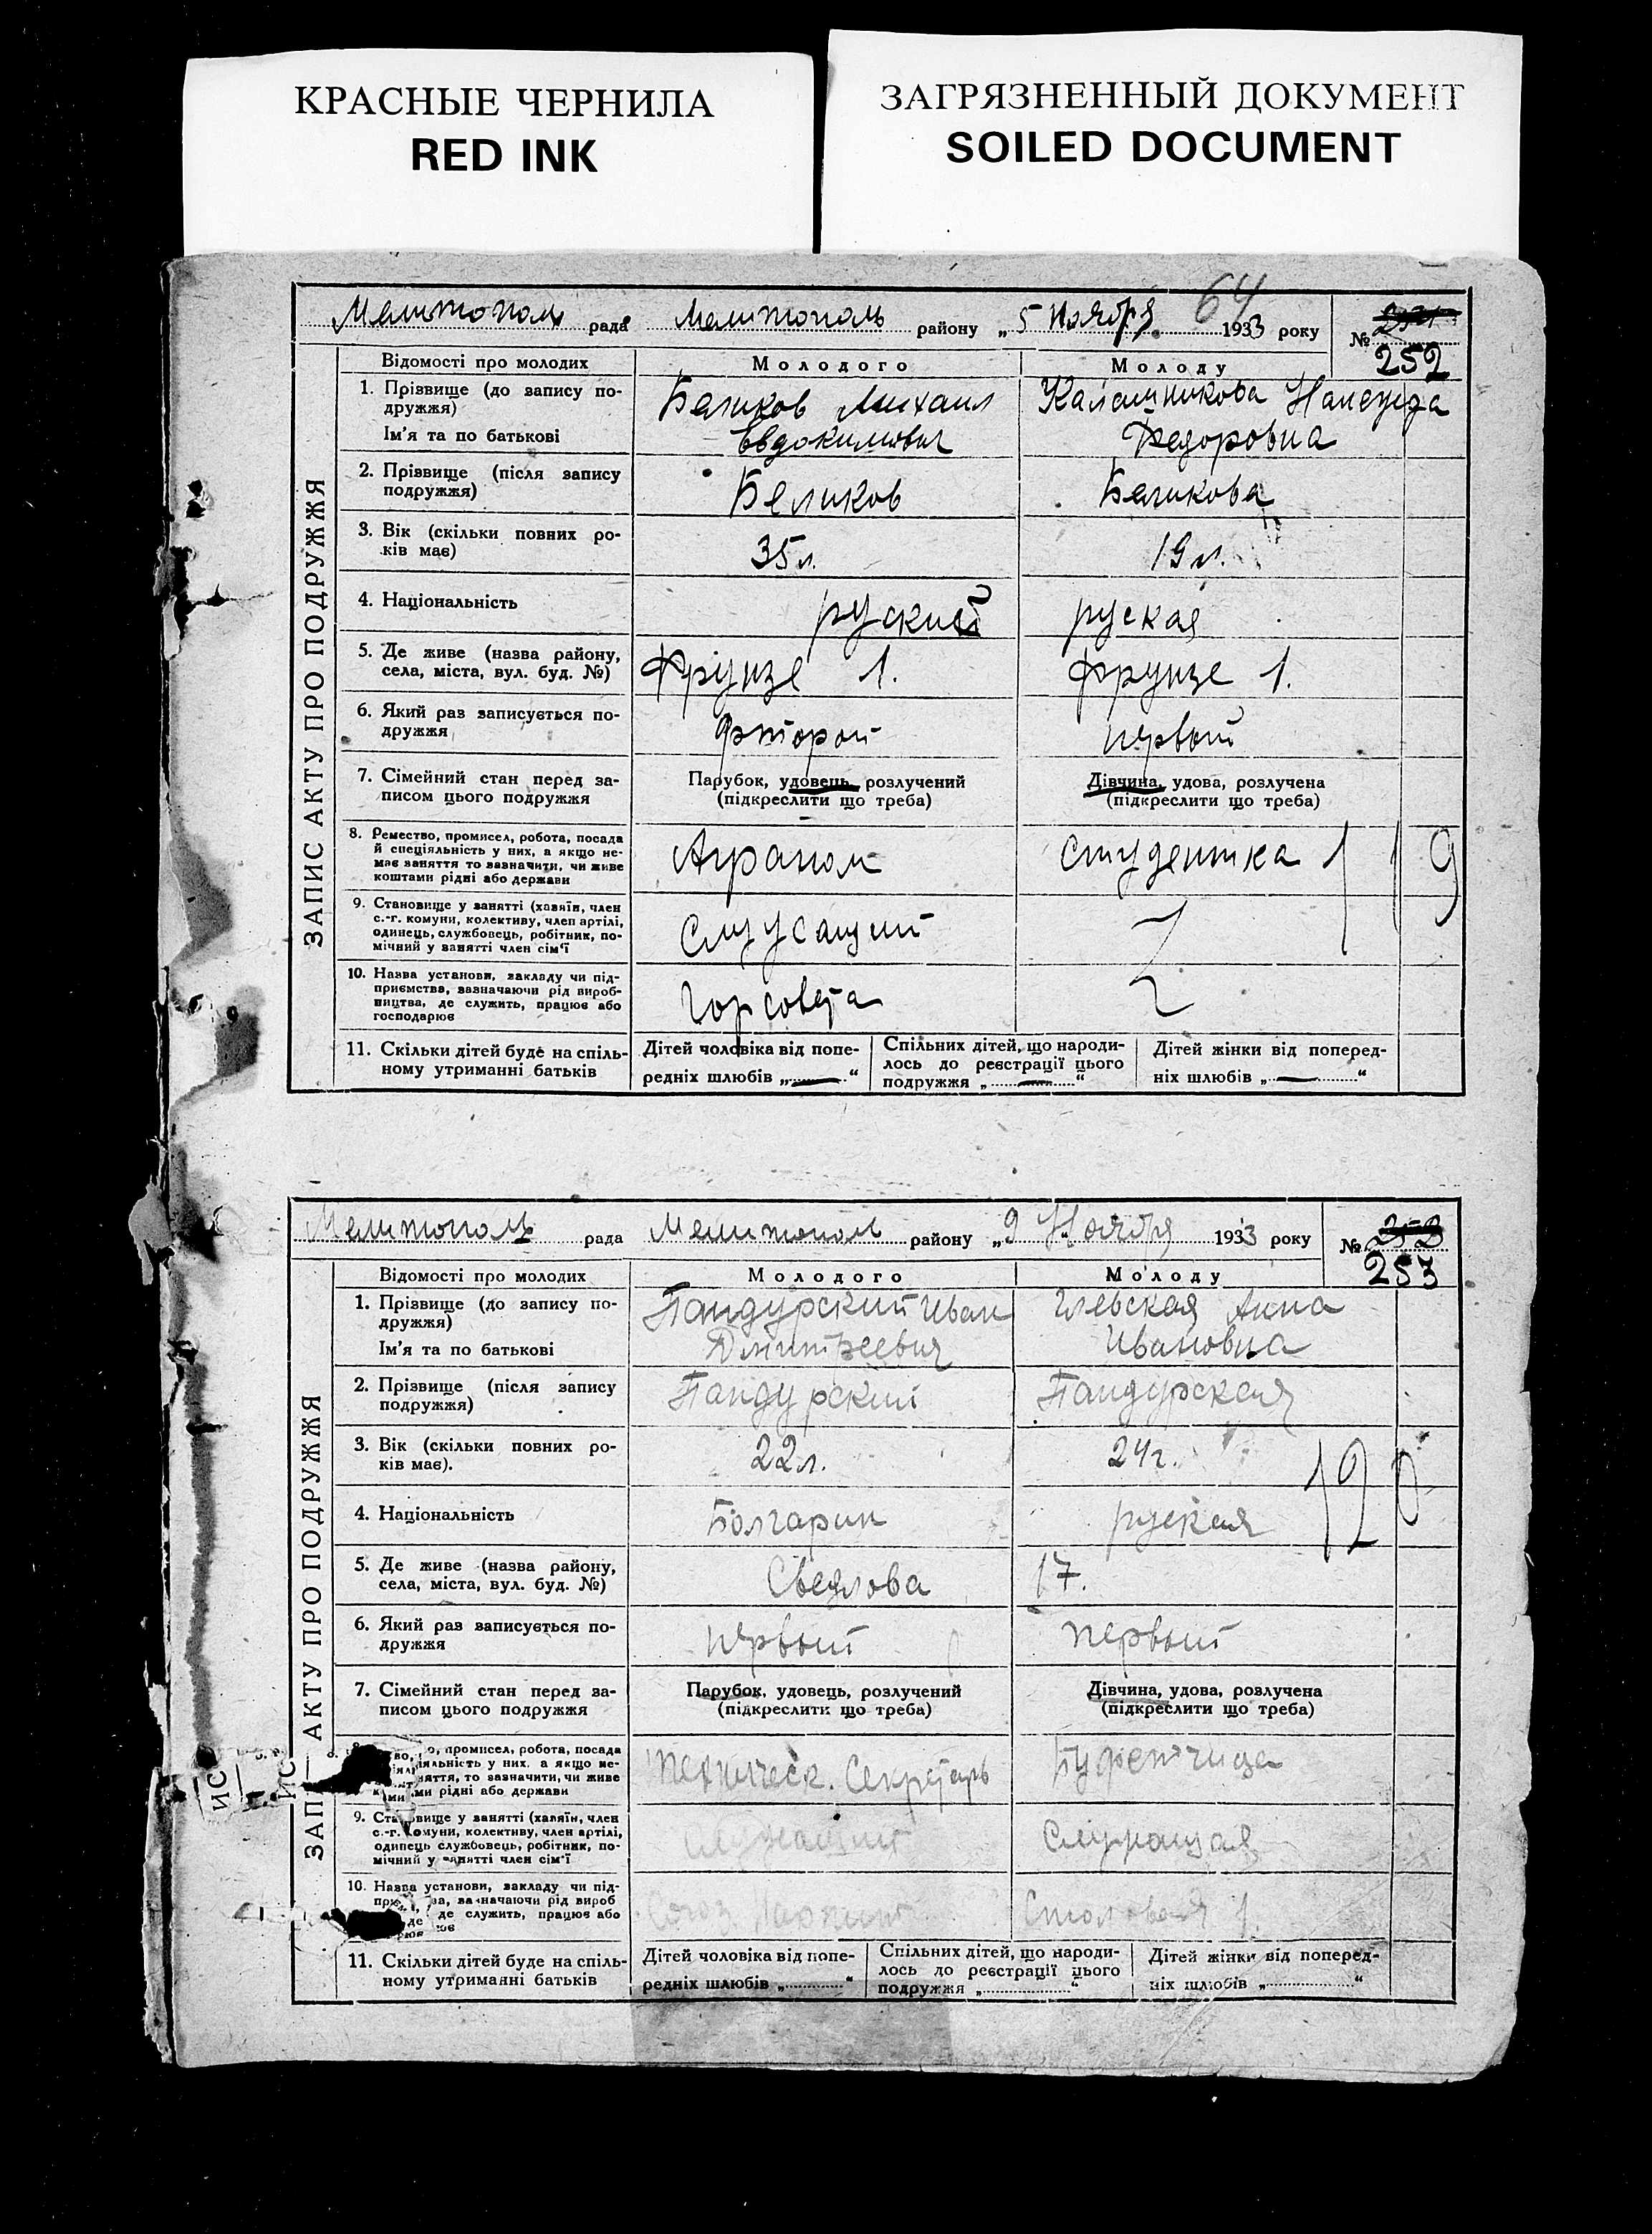 КРАСНЫЕ ЧЕРНИЛА
RED INK
ЗАГРЯЗНЕННЫЙ ДОКУМЕНТ
SOILED DOCUMENT
64
Мелитополь рада Мелитополь району „5 Ноября 1933 року №
252
ЗАПИС АКТУ ПРО ПОДРУЖЖЯ
Відомості про молодих Молодого Молоду
1. Прізвище (до запису по-
дружжя)
Ім'я та по батькові
Беликов Михаил
Евдокимович
Калашникова
Федоровна
2. Прізвище (після запису
подружжя)
Беликов Беликова
3. Вік (скільки повних ро-
ків має)
35 л. 19 л.
4. Національність руский руская
5. Де живе (назва району,
села, міста, вул. буд. №)
Фрунзе 1. Фрунзе 1.
6. Який раз записується по-
дружжя
фторой первый
7. Сімейний стан перед за-
писом цього подружжя
Парубок, удовець, розлучений
(підкреслити що треба)
Дівчина, удова, розлучена
(підкреслити що треба)
8. Ремество, промисел, робота, посада
й спеціяльність у них, а якщо не-
має заняття то зазначити, чи живе
коштами рідні або держави
Аграном студентка
9. Становище у занятті (хазяїн, член
с.-г. комуни, колективу, член артілі,
одинець, службовець, робітник, по-
мічний у занятті член сім'ї
10. Назва установи, закладу чи під-
приємства, зазначаючи рід вироб-
ництва, де служить, працює або
господарює
Горсовета
11. Скільки дітей буде на спіль-
ному утриманні батьків
Дітей чоловіка від попе-
редніх шлюбів „ — “
Спільних дітей, що народи-
лось до реєстрації цього
подружжя „ — “
Дітей жінки від поперед-
ніх шлюбів „ — “
Мелитополь рада Мелитополь району „9 Ноября 1933 року №
253
ЗАП АКТУ ПРО ПОДРУЖЖЯ
Відомості про молодих Молодого Молоду
1. Прізвище (до запису по-
дружжя)
Ім'я та по батькові
Пандурский Иван
Дмитреевич
Анна
Ивановна
2. Прізвище (після запису
подружжя)
Пандурский Пандурская
3. Вік (скільки повних ро-
ків має).
22 л. 24 г.
4. Національність Болгарин руская
5. Де живе (назва району,
села, міста, вул. буд. №)
Сведлова 17.
6. Який раз записується по-
дружжя
первый первый
7. Сімейний стан перед за-
писом цього подружжя
Парубок, удовець, розлучений
(підкреслити що треба)
Дівчина, удова, розлучена
(підкреслити що треба)
промисел, робота, посада
у них, а якщо не-
то зазначити, чи живе
рідні або держави
Техническ. Секретарь Буфетчица
9. у занятті (хазяїн, член
с.-г. комуни, колективу, член артілі,
одинець службовець, робітник, по-
мічний у занятті член сім'ї
10. Назва установи, закладу чи під-
зазначаючи рід вироб
де служить, працює або
Столовая 1.
11. Скільки дітей буде на спіль-
ному утриманні батьків
Дітей чоловіка від попе-
редніх шлюбів „ “
Спільних дітей, що народи-
лось до реєстрації цього
подружжя „ “
Дітей жінки від поперед-
ніх шлюбів „ “